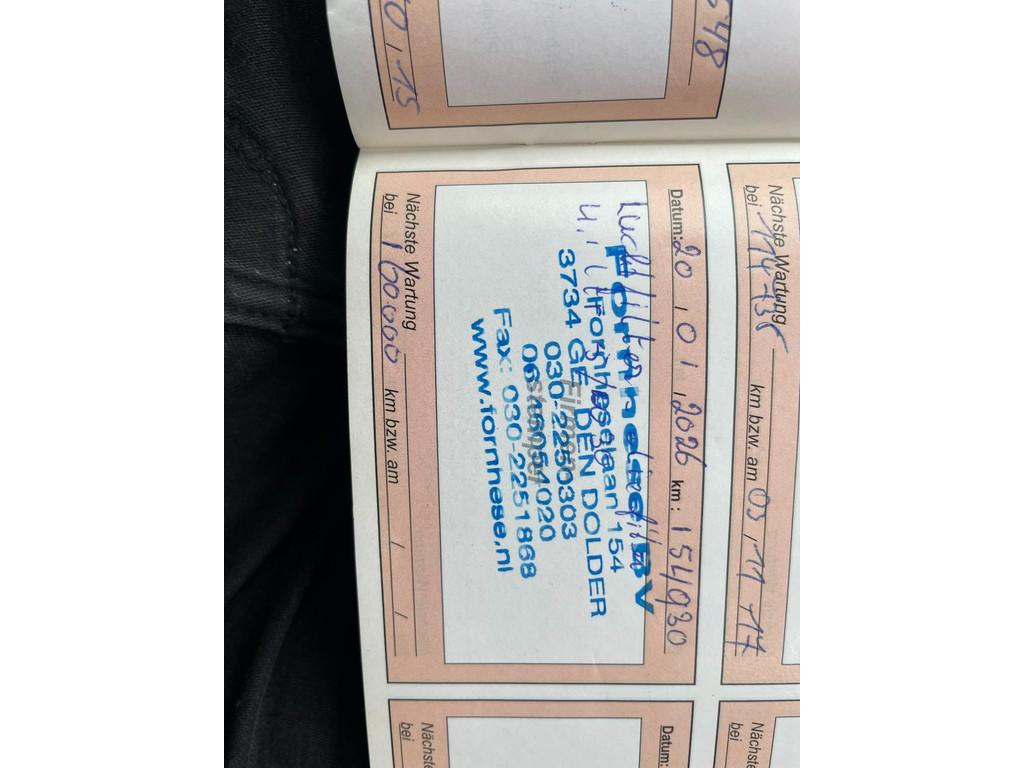 548
0 , 15
Datum: 20 , 01 , 2026 km: 154930
Luchtfilter
Fornhese BV
Fornheselaan 154
3734 GE DEN DOLDER
030-2250303
06-46054020
Fax: 030-2251868
www.fornhese.nl
Firmen-
stempel
Nächste Wartung
bei 160.000 km bzw. am / /
Nächste Wartung
bei km bzw. am 03 , 11 17
Datum:
Nächste
bei
Nächste
bei